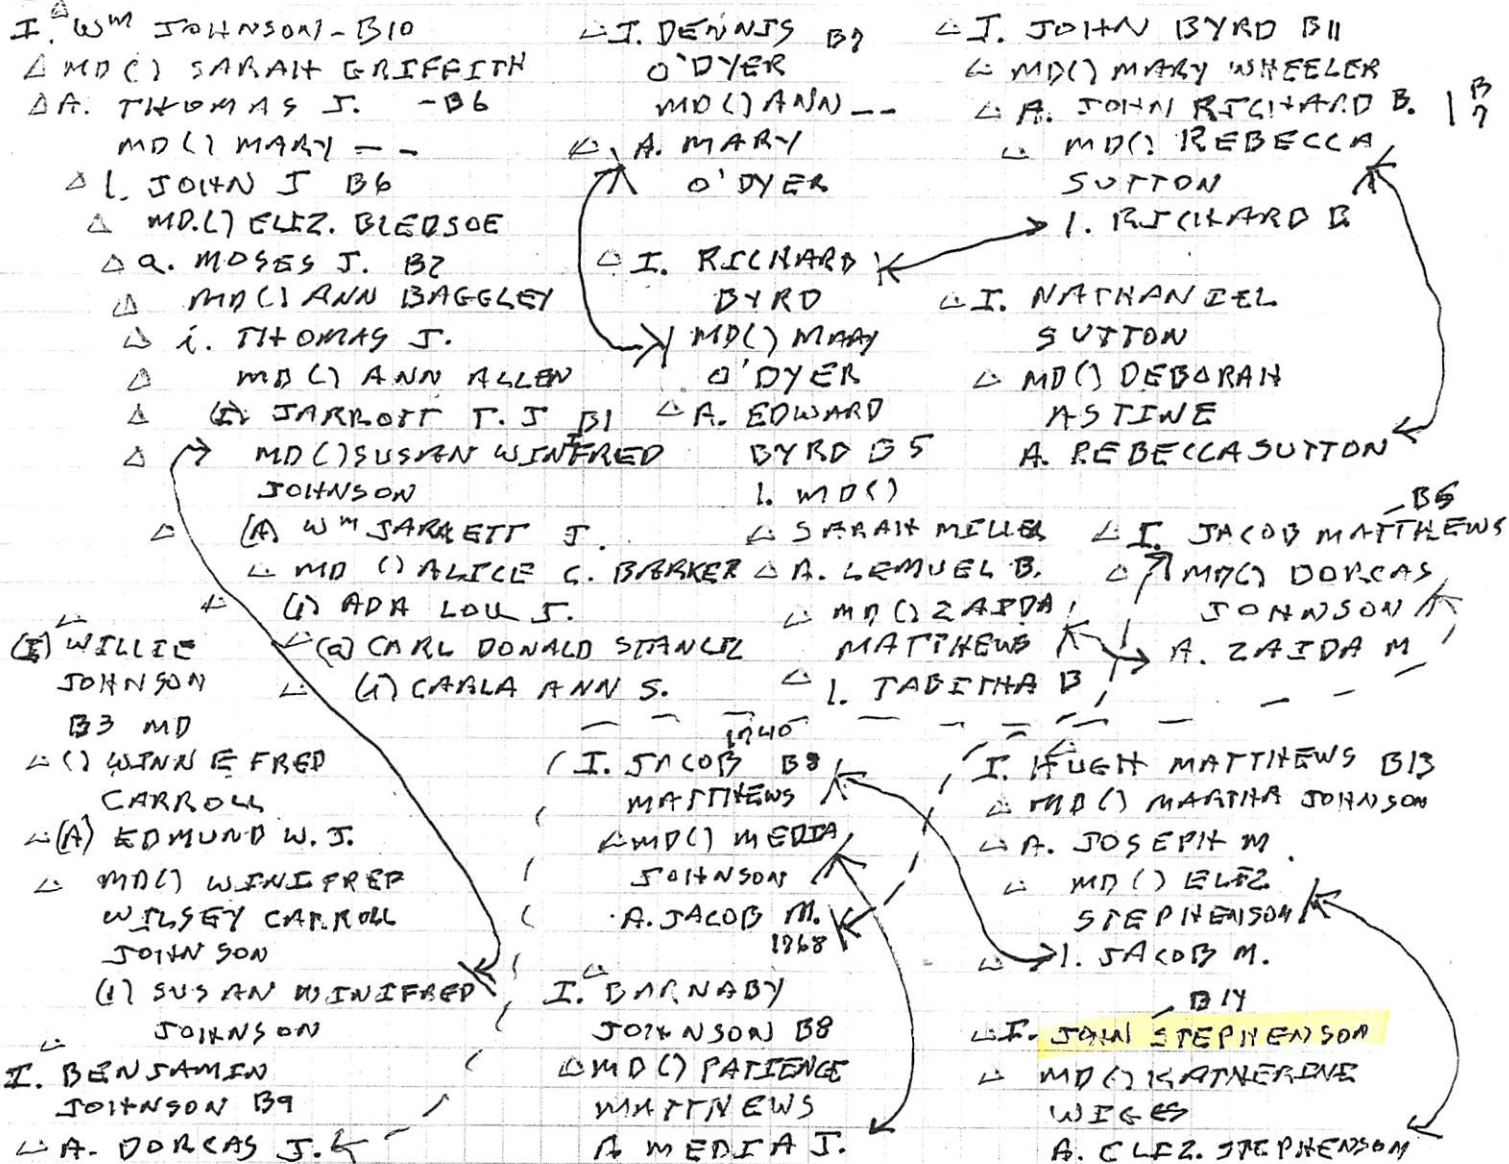 I. Wm JOHNSON - B10
MD () SARAH GRIFFITH
A. THOMAS J. - B6
MD () MARY - -
1. JOHN J B6
MD. () ELIZ. BLEDSOE
a. MOSES J. B2
MD () ANN BAGGLEY
i. THOMAS J.
MD () ANN ALLEN
(I) JARROTT T. J B1
MD () SUSAN WINIFRED
JOHNSON
(A) Wm JARRETT J.
MD () ALICE C. BARKER
(1) ADA LOU J.
(a) CARL DONALD STANCIL
(i) CARLA ANN S.
(I) WILLIE
JOHNSON
B3 MD
() WINNEFRED
CARROLL
(A) EDMUND W. J.
MD () WINIFRED
WILSEY CARROLL
JOHNSON
(1) SUSAN WINIFRED
JOHNSON
I. BENJAMIN
JOHNSON B9
A. DORCAS J.
I. DENNIS B7
O'DYER
MD () ANN - -
A. MARY
O'DYER
I. RICHARD
BYRD
MD () MARY
O'DYER
A. EDWARD
BYRD B5
1. MD ()
SARAH MILLER
A. LEMUEL B.
MD () ZAIDA
MATTHEWS
1. TABITHA B
1740
I. JACOB B8
MATTHEWS
MD () MEDIA
JOHNSON
A. JACOB M.
1768
I. BARNABY
JOHNSON B8
MD () PATIENCE
MATTHEWS
A MEDIA J.
I. JOHN BYRD B11
MD () MARY WHEELER
A. JOHN RICHARD B. B7
MD () REBECCA
SUTTON
1. RICHARD B
I. NATHANIEL
SUTTON
MD () DEBORAH
ASTINE
A. REBECCA SUTTON
B5
I. JACOB MATTHEWS
MD () DORCAS
JOHNSON
A. ZAIDA M
I. HUGH MATTHEWS B13
MD () MARTHA JOHNSON
A. JOSEPH M.
MD () ELIZ
STEPHENSON
1. JACOB M.
B14
I. JOHN STEPHENSON
MD () KATHERINE
WIGES
A. ELIZ. STEPHENSON